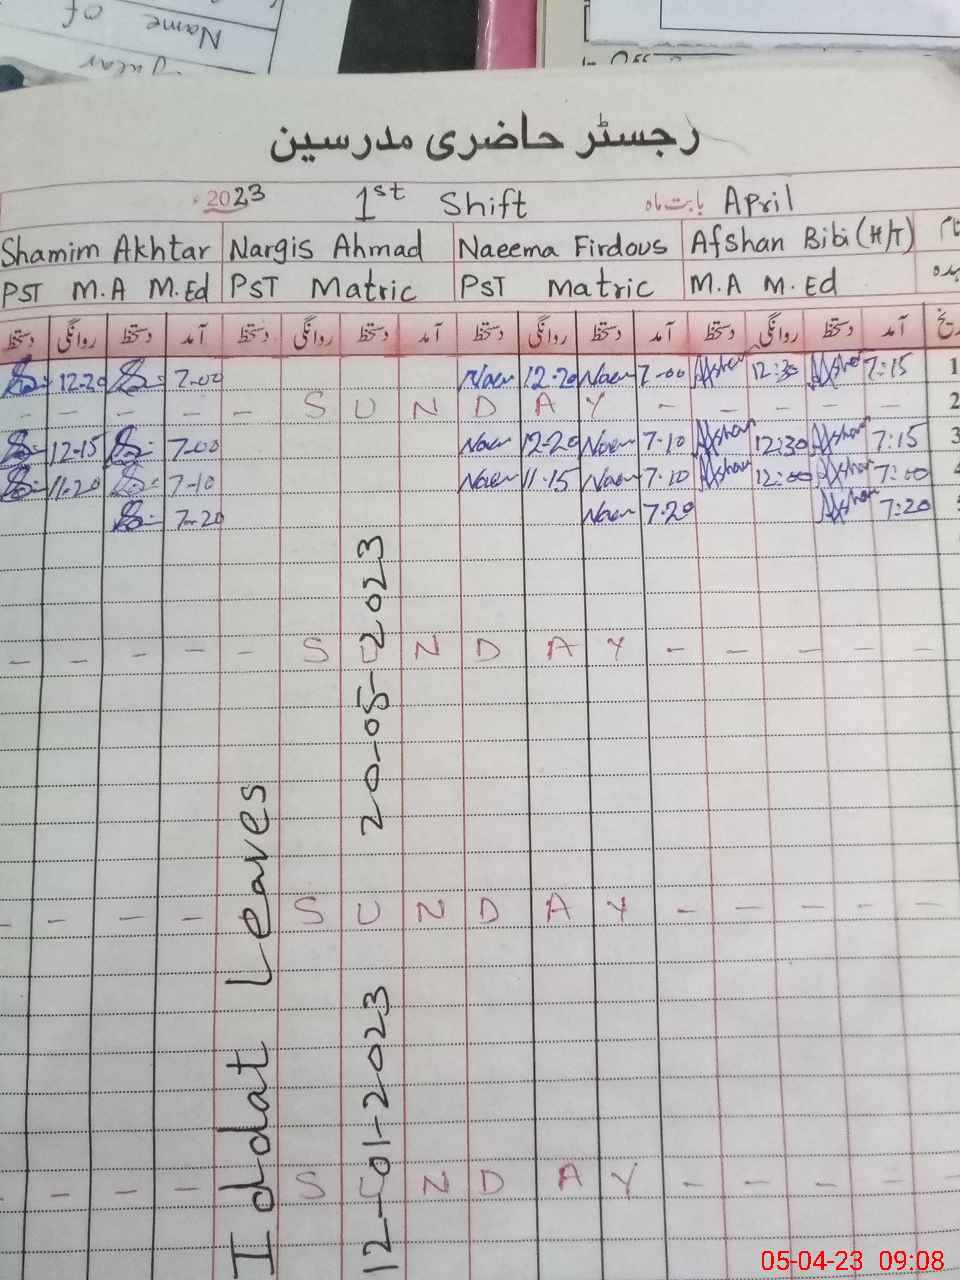 Name of
رجسٹر حاضری مدرسین
2023 1st Shift بابت ماہ April
Shamim Akhtar Nargis Ahmad Naeema Firdous Afshan Bibi (H/T) نام
PST M.A M.Ed PST Matric PST Matric M.A M.Ed
دستخط روانگی دستخط آمد دستخط روانگی دستخط آمد دستخط روانگی دستخط آمد دستخط روانگی دستخط آمد
12-20 7-00 Naeem 12-20 Naeem 7-00 Afshan 12:30 Afshan 7:15 1
- - - - - S U N D A Y - - - - - 2
12-15 7-00 Naeem 12-20 Naeem 7-10 Afshan 12:30 Afshan 7:15 3
11-20 7-10 Naeem 11-15 Naeem 7-10 Afshan 12:00 Afshan 7:00 4
7-20 Naeem 7-20 Afshan 7:20 5
- - - - - S U N D A Y - - - - -
- - - - S U N D A Y - - - - -
- - - - S U N D A Y - - - - -
Iddat Leaves
12-01-2023 20-05-2023
05-04-23 09:08